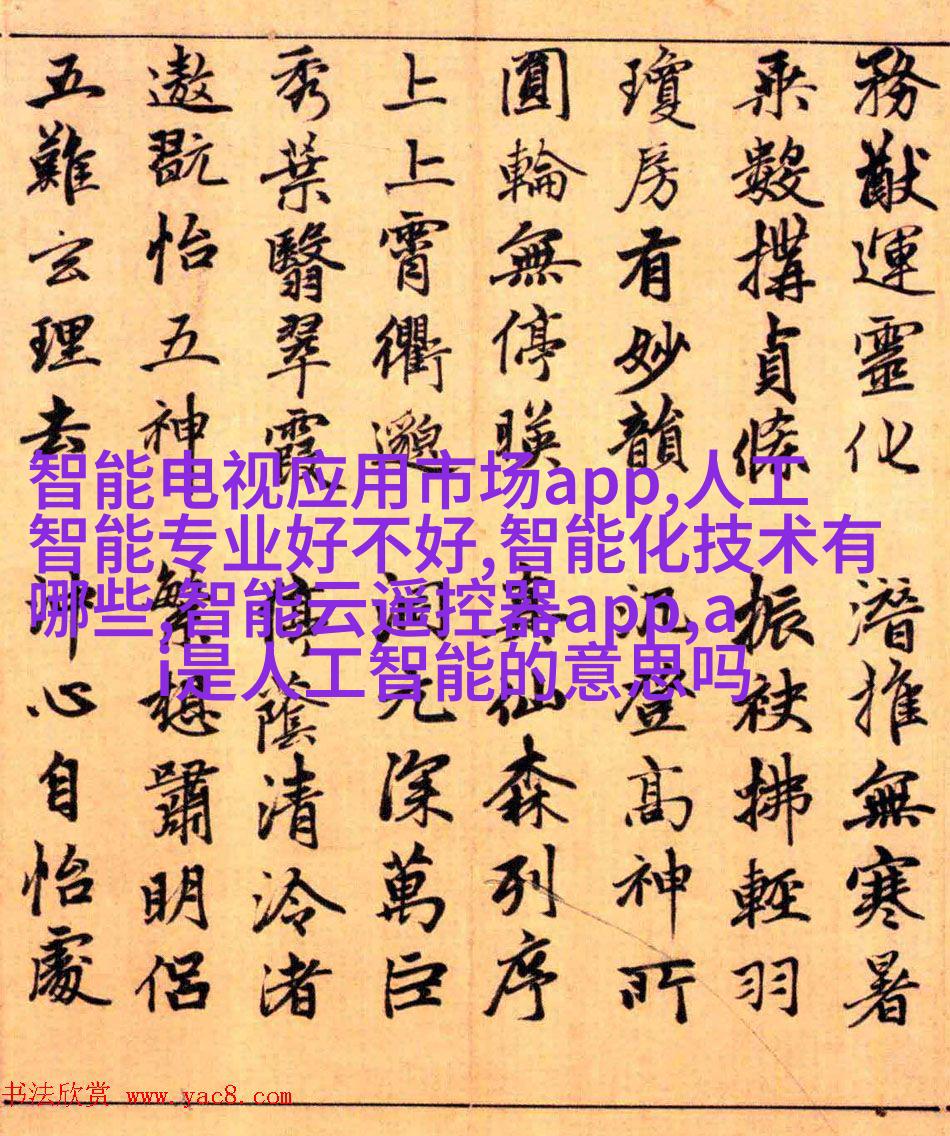 務猷運靈化潛推無寒暑
乗數搆貞條振袂拂輕羽
瓊房有妙韻汎登高神所
圓輪無停暎真仙森列序
上上霄衢邈洞元深萬巨
秀葉翳翠霞停陰清泠渚
遨翫怡五神繁想嘯明侶
五難玄理去沖心自怡處
智能电视应用市场app,人工
智能专业好不好,智能化技术有
哪些,智能云遥控器app,a
i是人工智能的意思吗
书法欣赏 www.yac8.com